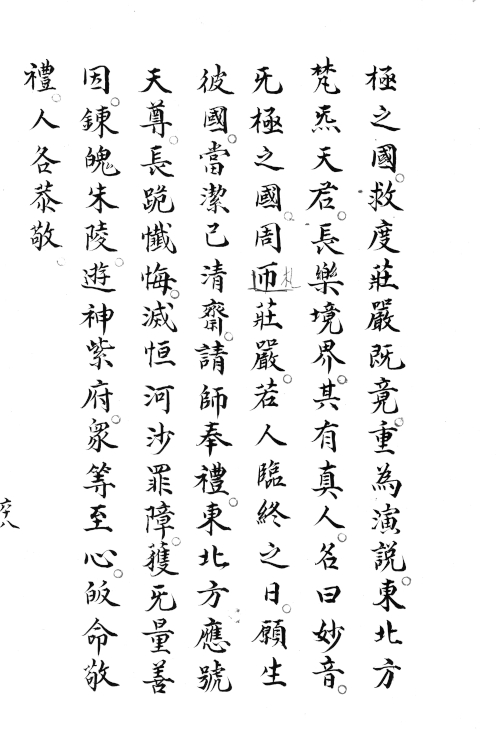 極之國。救度莊嚴既竟。重為演説。東北方
梵炁天君。長樂境界。其有真人。名曰妙音。
旡極之國。周匝莊嚴。若人臨終之日。願生
彼國。當潔己清齋。請師奉禮。東北方應號
天尊。長跪懺悔。滅恒河沙罪障。獲旡量善
因。鍊魄朱陵。遊神紫府。衆等至心。皈命敬
禮。人各恭敬。